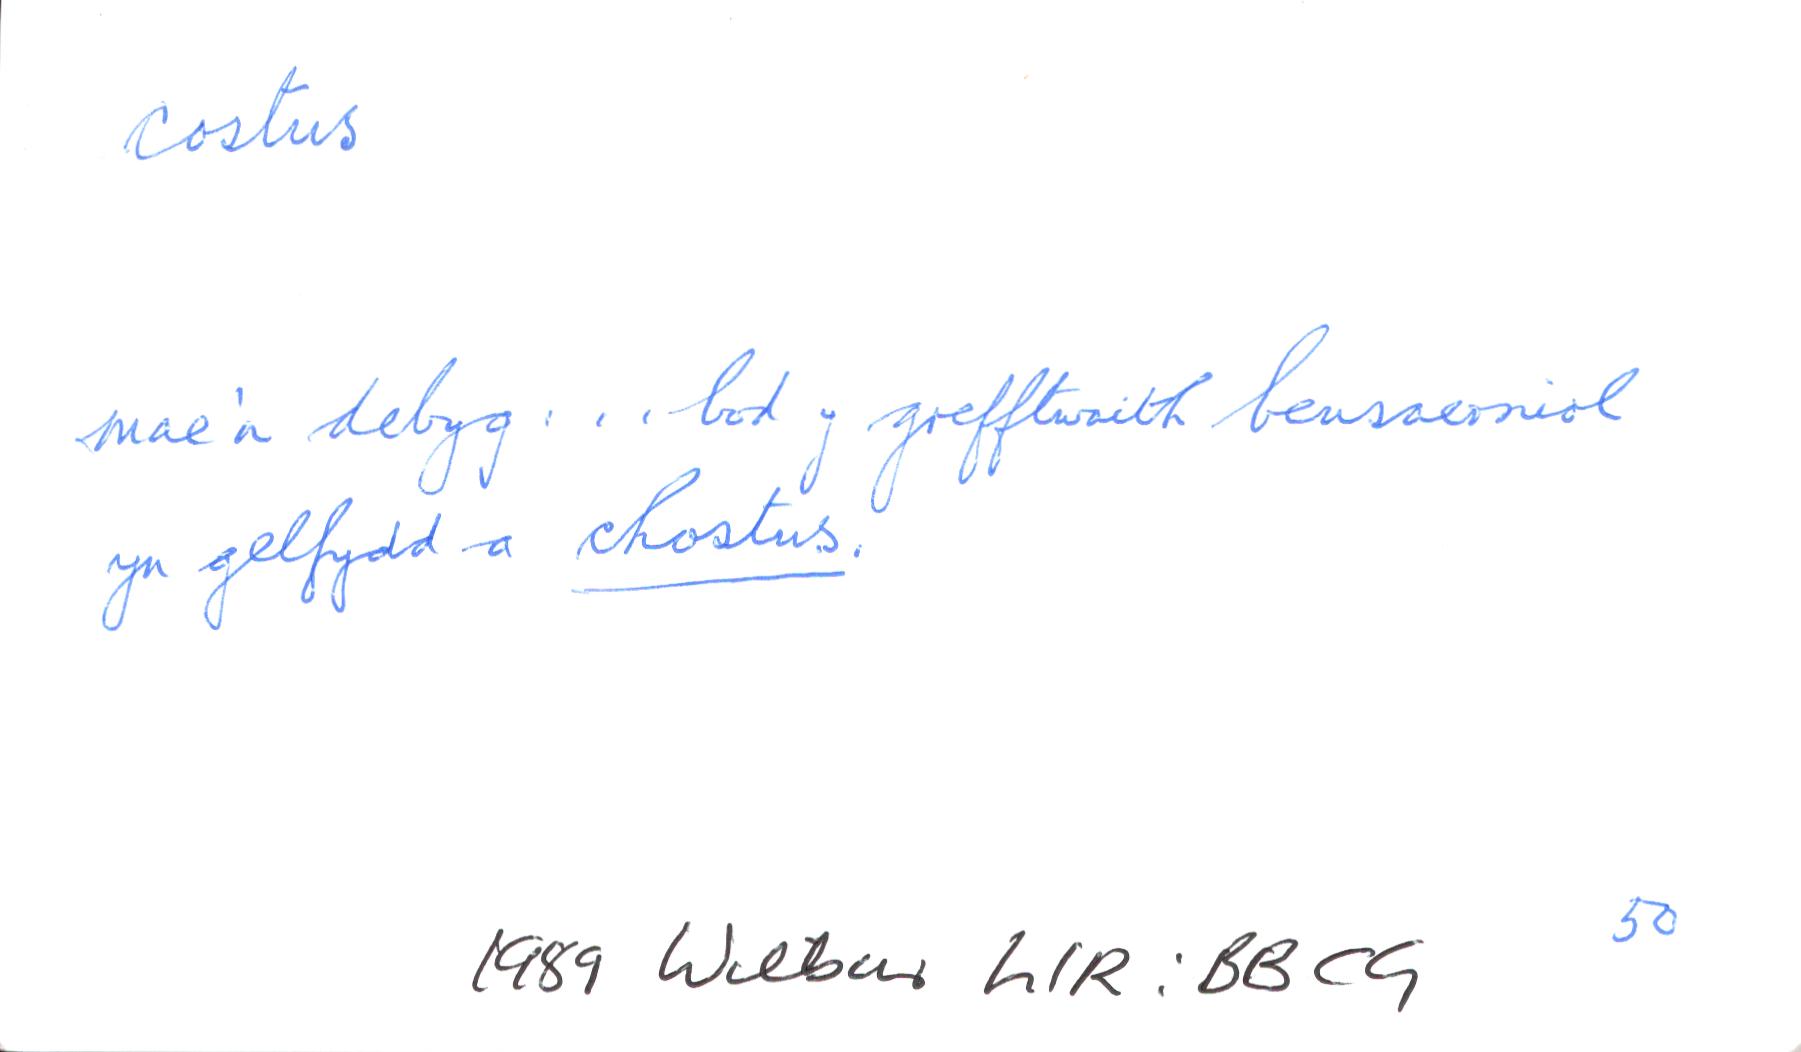 costus
mae'n debyg . . . bod y grefftwaith bensaerniol
yn gelfydd a chostus.
50
1989 Wilbur LlR : BBCG